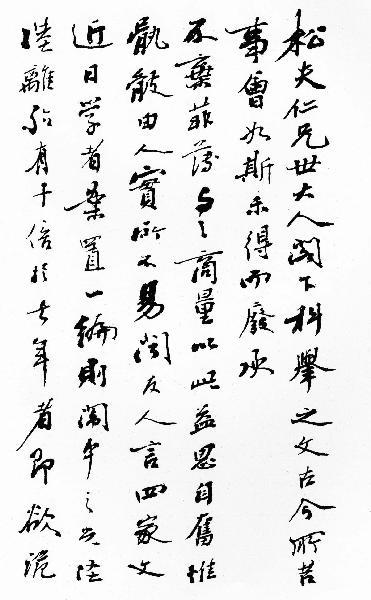 松夫仁兄世大人閣下科舉之文古今所苦
事會如斯未得而廢承
不棄菲薄與之商量以此益思自奮惟
骫骳由人實所不易聞友人言四家文
近日学者案置一編則闈中之光怪
陸離殆有十倍於去年者即欲詭